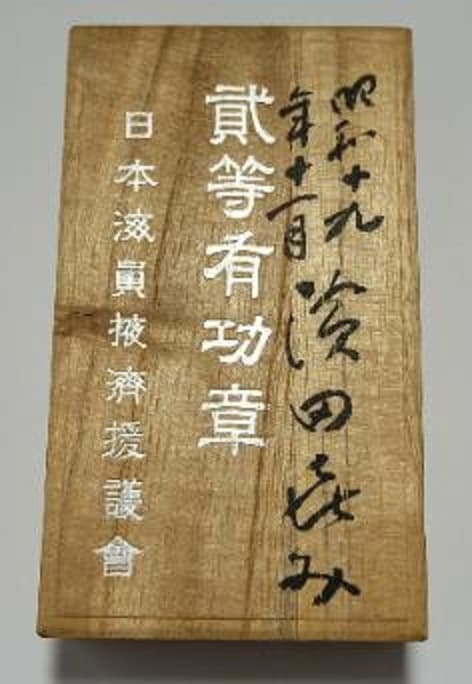 昭和十九
年十一月
濱田喜み
貳等有功章
日本海員掖濟援護會